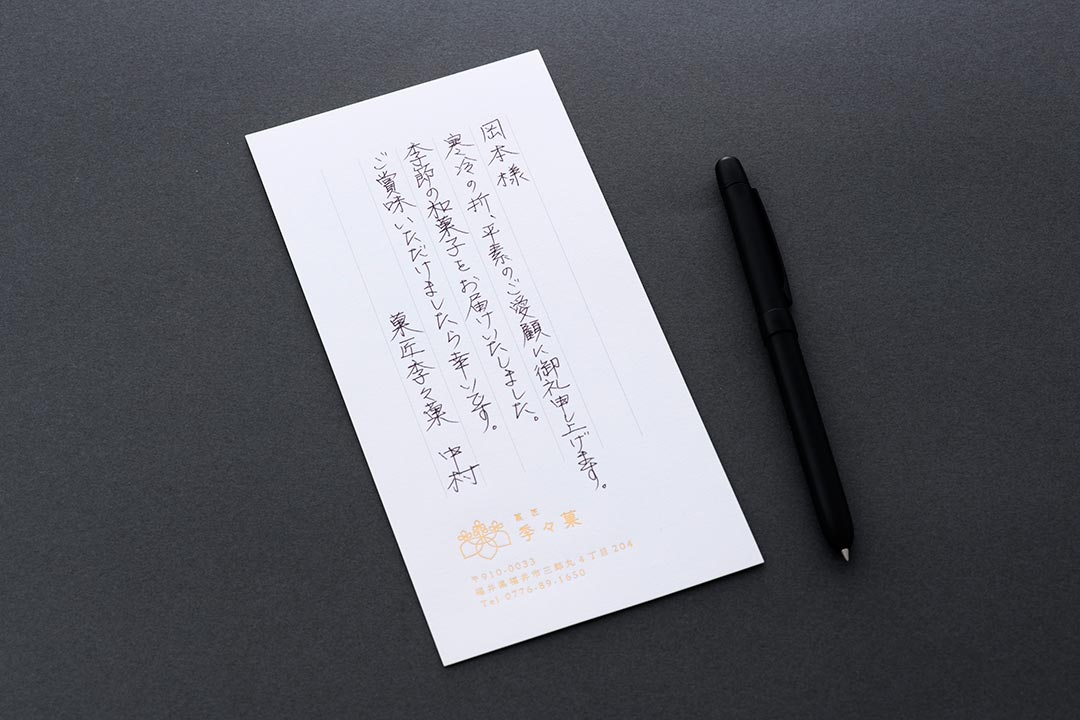 岡本様
寒冷の折、平素のご愛顧に御礼申し上げます。
季節の和菓子をお届けいたしました。
ご賞味いただけましたら幸いです。
菓匠季々菓　中村
菓匠
季々菓
〒910-0033
福井県福井市三郎丸4丁目204
Tel 0776-89-1650